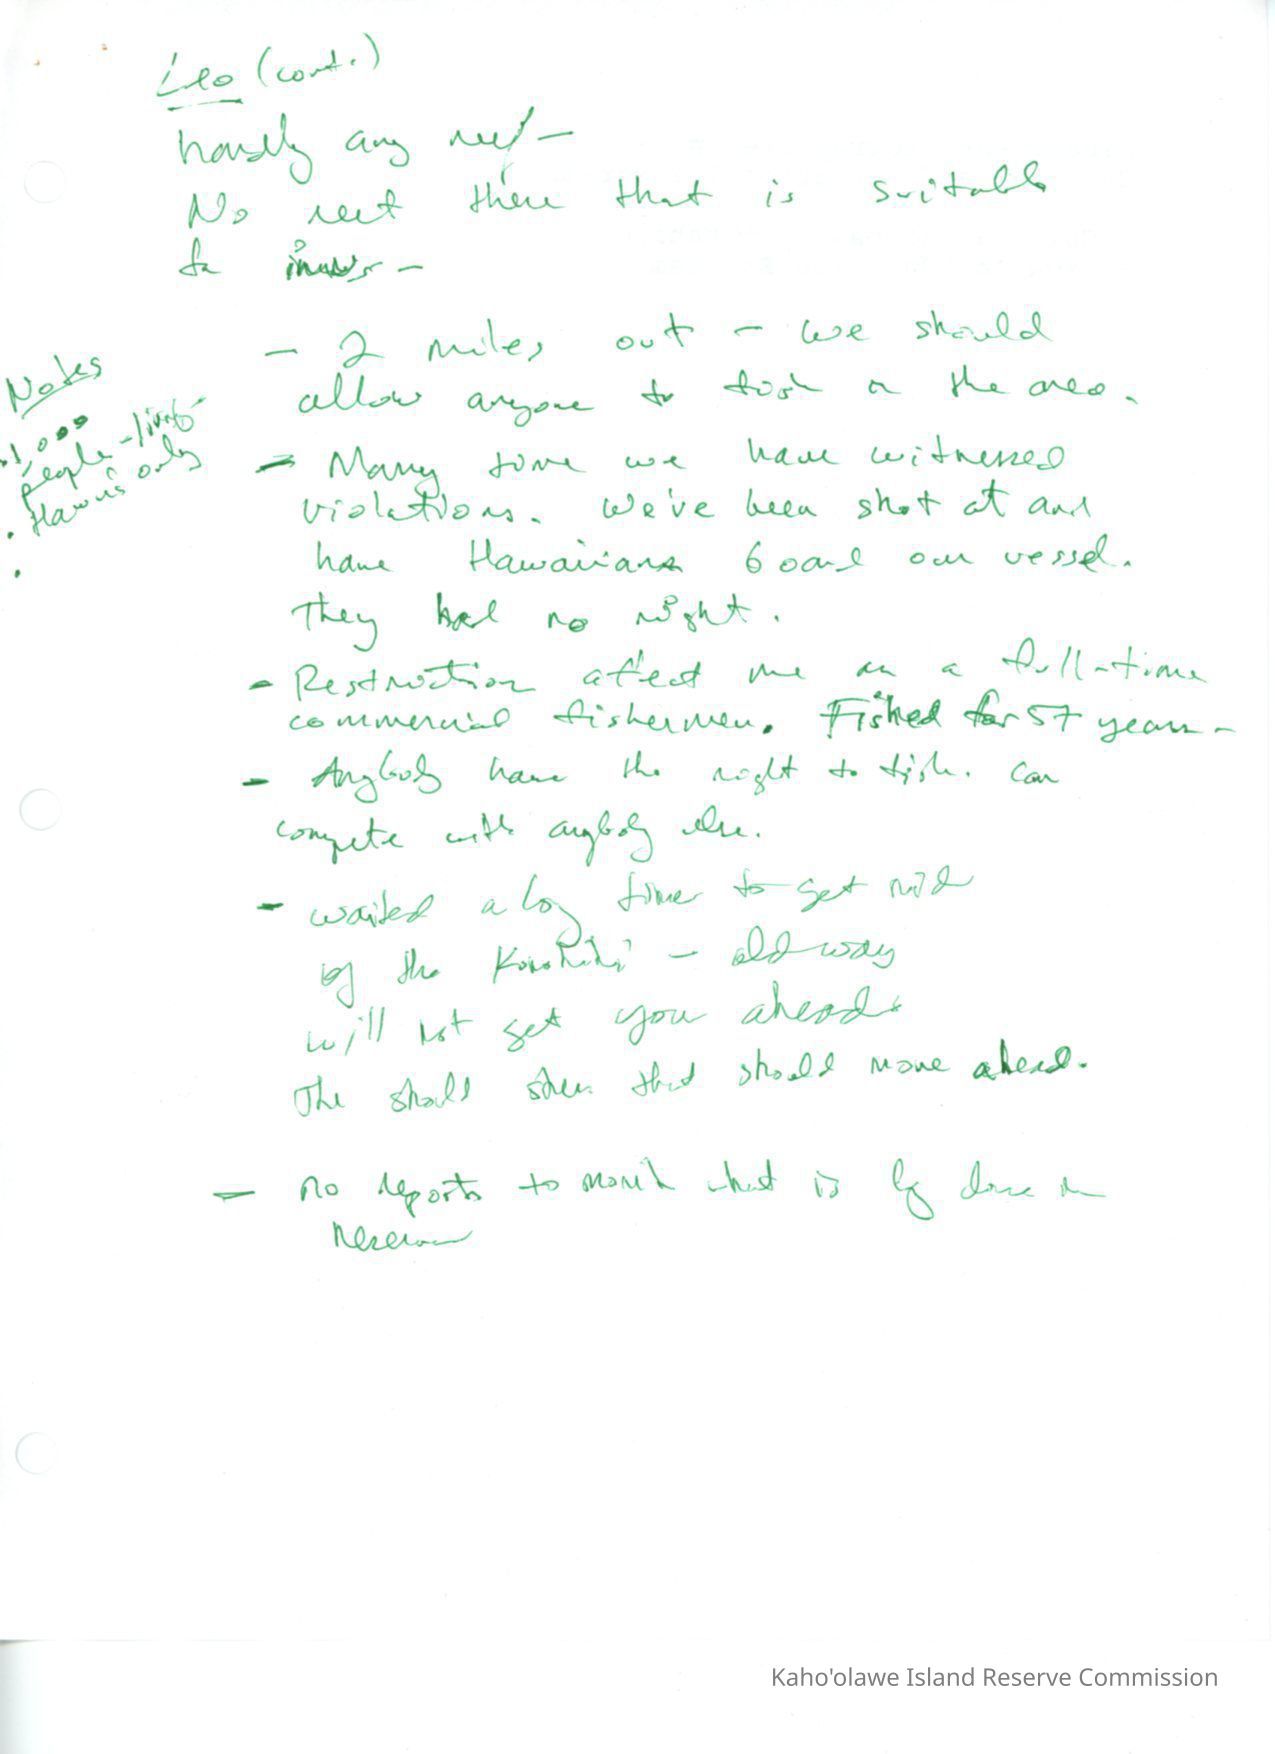 Leo (cont.)
hardly any reef —
No reef there that is suitable
for
— 2 miles out — we should
allow anyone to fish in the area.
Notes
1,000
people - limit
Hawn's only
— Many time we have witnessed
violations. We've been shot at and
have Hawaiians board our vessel.
They had no right.
— Restriction affect me as a full-time
commercial fishermen. Fished for 57 years -
— Anybody have the right to fish. Can
compete with anybody else.
— waited a long time to get rid
of the Konohiki - old way
will not get you ahead.
The should that should move ahead.
— no reports to what is being done in
Reserve
Kaho'olawe Island Reserve Commission